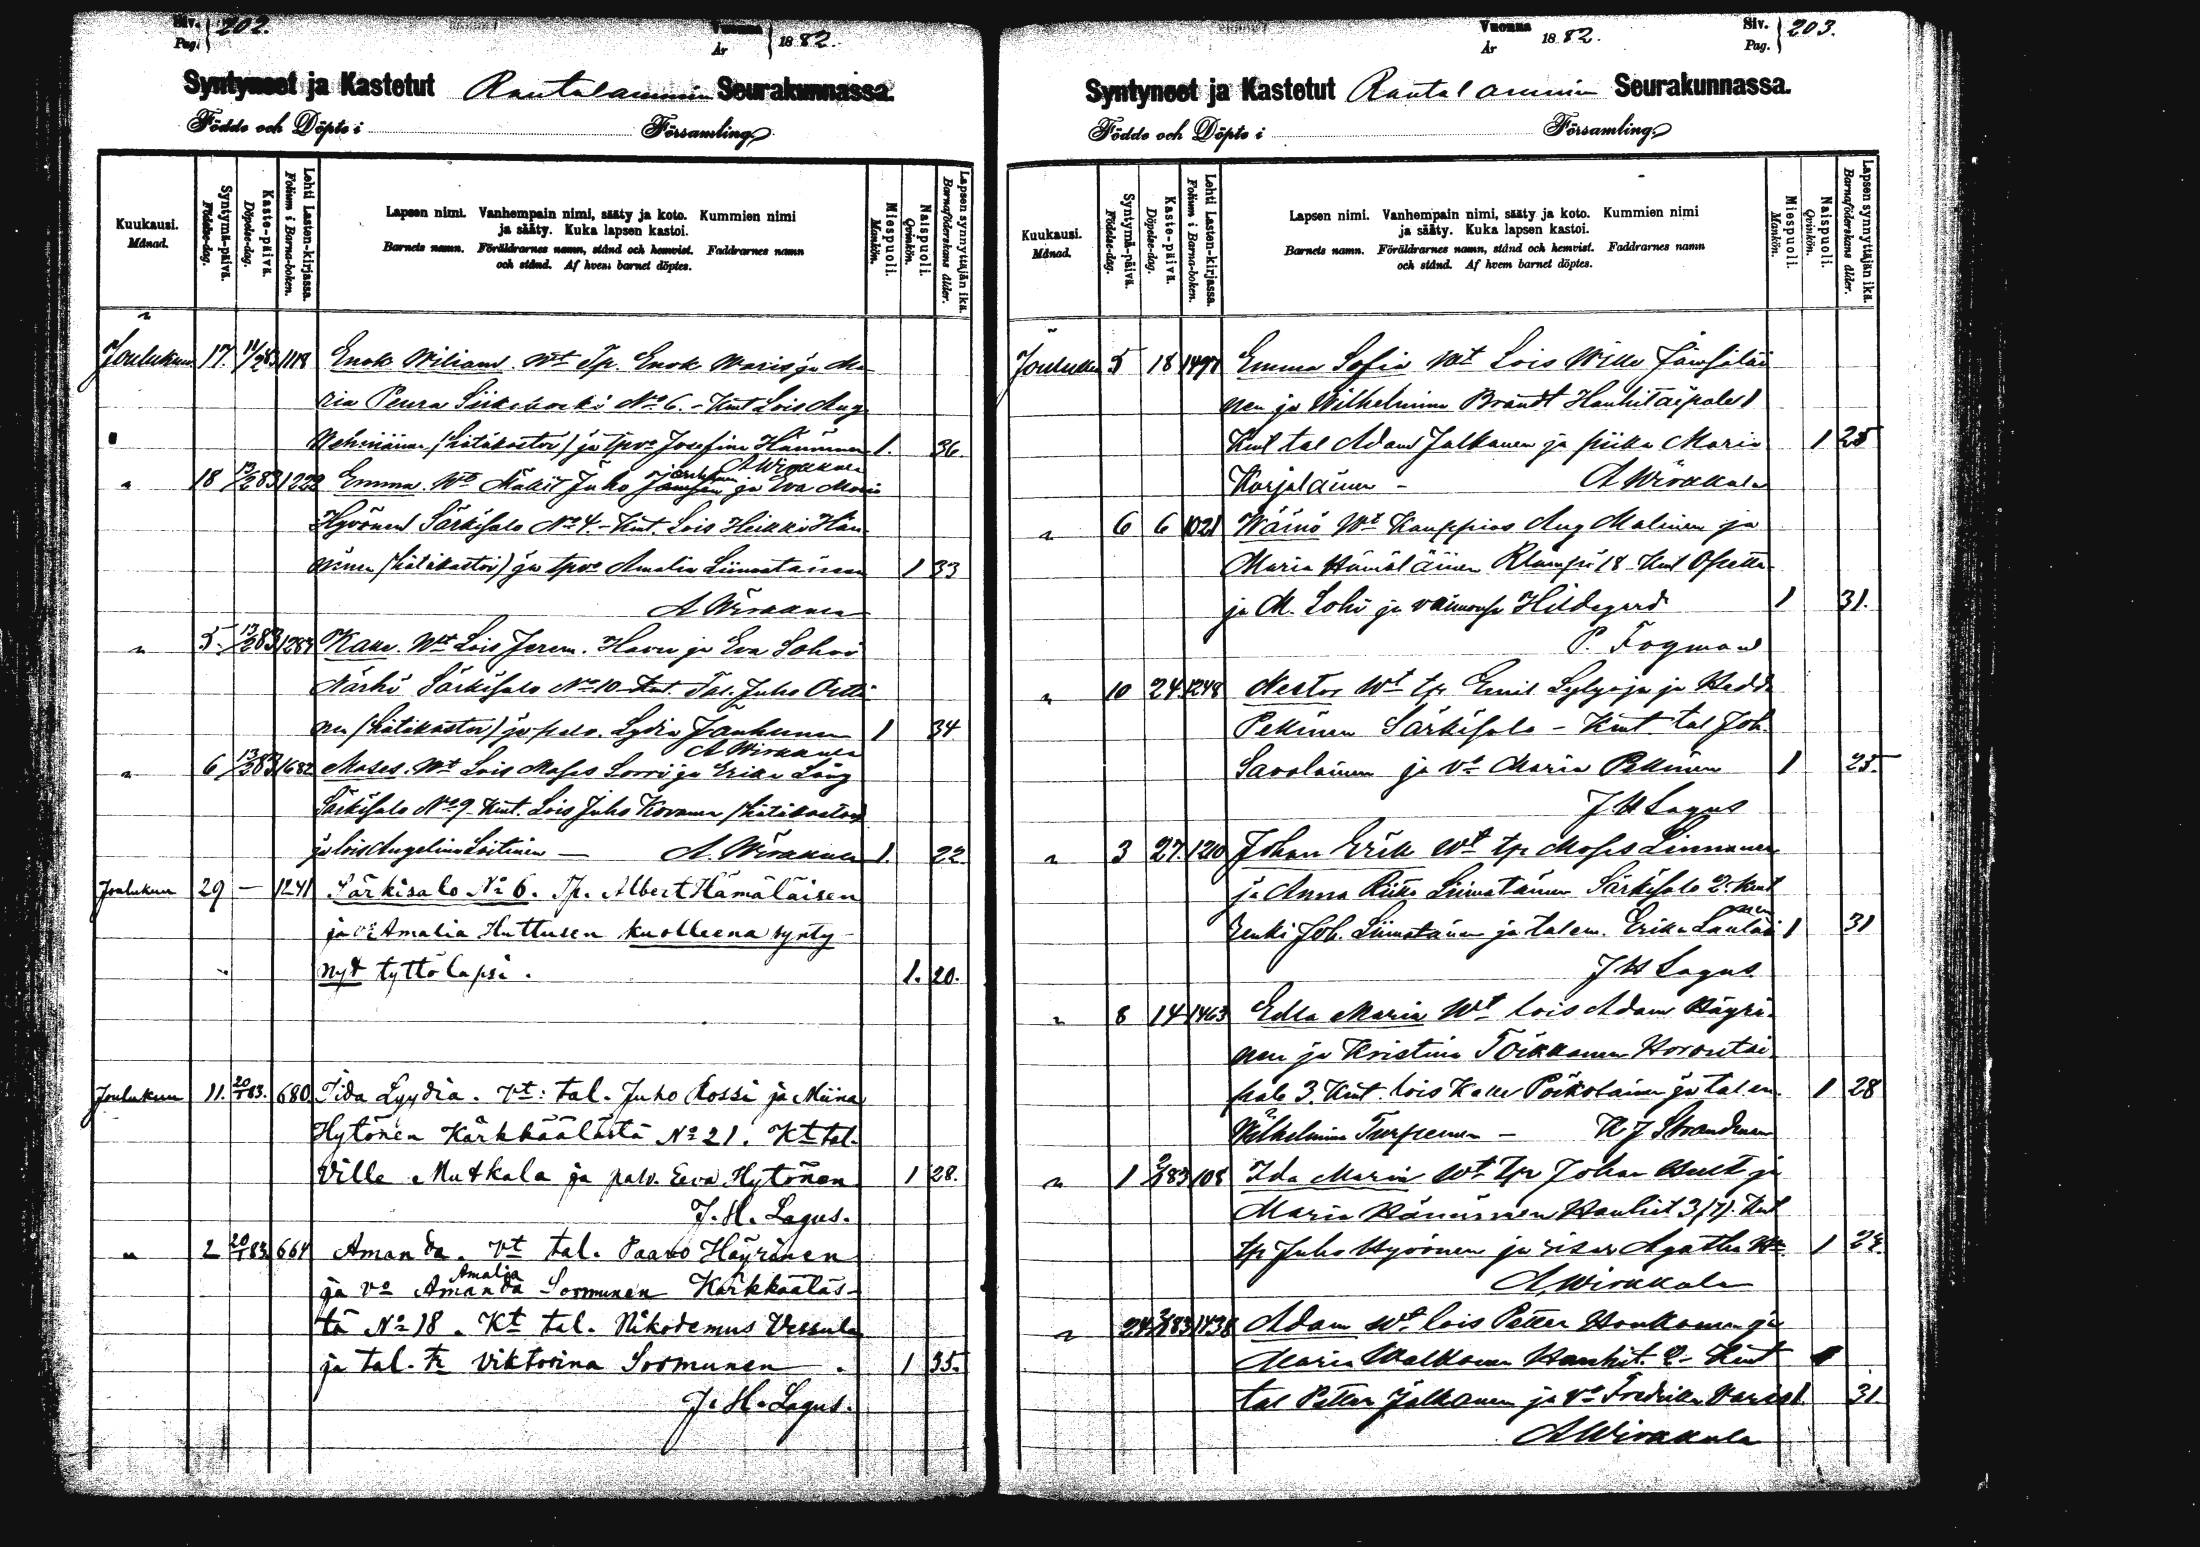 Siv. Pag. 202.
Vuonna År 1882.
Syntyneet ja Kastetut Rautalammin Seurakunnassa.
Födde och Döpte i Församling.
Kuukausi. Månad.
Syntymä-päivä. Födelse-dag.
Kaste-päivä. Döpelse-dag.
Lehti Lasten-kirjassa. Folium i Barna-boken.
Lapsen nimi. Vanhempain nimi, sääty ja koto. Kummien nimi
ja sääty. Kuka lapsen kastoi.
Barnets namn. Föräldrarnes namn, stånd och hemvist. Faddrarnes namn
och stånd. Af hvem barnet döptes.
Miespuoli. Mankön.
Naispuoli. Qvinkön.
Lapsen synnyttäjän ikä. Barnaföderskans ålder.
Joulukuu 17. 11/2 83. 1118 Enok Viliam. Wt Tp. Enok Waris ja Ma
ria Peura Siikakoski No 6. - Kmt Lois Aug.
(hätäkastoi) ja tpvo Josefina Hänninen 1. 36
A Wirkkula
" 18 13/2 83 1222 Emma. Wt Mäkit Juho ja Eva Maria
Hyvönen Särkisalo No 4. - Kmt. Lois Heikki Hän
ninen (hätäkastoi) ja tpvo Amalia Liimatainen 1 33
A Wirkkula
" 5. 13/2 83 1284 Kalle. Wt Lois Jerem. Havu ja Eva Sohvi
Närhi Särkisalo No 10 Kmt. Tal. Juho Outi
nen (hätäkastoi) ja palv. Lydia Janhunen 1 34
A Wirkkula
" 6 13/2 83 1682 Moses. Wt Lois Moses Sorri ja Erika Läng
Särkisalo No 9 - Kmt. Lois Juho Kovanen (hätäkastoi)
ja lois Angelina Laitinen — A. Wirkkula 1. 22
Joulukuu 29 — 1241 Särkisalo No 6. Tp. Albert Hämäläisen
ja vo Amalia Huttusen kuolleena synty-
nyt tyttölapsi. 1. 20.
Joulukuu 11. 20/1 83. 680. Iida Lyydia. Vt: tal. Juho Rossi ja Miina
Hytönen Kärkkäälästä No 21. Kt tal.
Ville Mutkala ja palv. Eeva Hytönen 1 28.
J. H. Lagus.
" 2 20/1 83. 664 Amanda. Vt tal. Paavo Häyrinen
ja vo Amanda Amalia Sormunen Kärkkääläs-
tä No 18. Kt tal. Nikodemus Vessula
ja tal. tr Viktorina Sormunen. 1 35.
J. H. Lagus.
Vuonna År 1882.
Siv. Pag. 203.
Syntyneet ja Kastetut Rautalammin Seurakunnassa.
Födde och Döpte i Församling.
Kuukausi. Månad.
Syntymä-päivä. Födelse-dag.
Kaste-päivä. Döpelse-dag.
Lehti Lasten-kirjassa. Folium i Barna-boken.
Lapsen nimi. Vanhempain nimi, sääty ja koto. Kummien nimi
ja sääty. Kuka lapsen kastoi.
Barnets namn. Föräldrarnes namn, stånd och hemvist. Faddrarnes namn
och stånd. Af hvem barnet döptes.
Miespuoli. Mankön.
Naispuoli. Qvinkön.
Lapsen synnyttäjän ikä. Barnaföderskans ålder.
Joulukuu 5 18 1497 Emma Sofia Wt Lois Wille Jämsäläi
nen ja Wilhelmina Brandt Hanhitaipale 1
Kmt tal Adam Jalkanen ja piika Maria 1 25
Karjalainen - A Wirkkula
" 6 6 1021 Wäinö Wt Kauppias Aug Malinen ja
Maria Hämäläinen 18 Kmt
ja M. Lohi ja vaimonsa Hildegard 1 31.
P. Fogman
" 10 24. 1248 Nestor Wt tp Emil Lylyoja ja Hedda
Pekinen Särkisalo - Kmt tal Joh.
Savolainen ja vo Maria Pekinen 1 25.
J H Lagus
" 3 27. 1210 Johan Erik Wt tp Moses Linnanen
ja Anna Riika Liimatainen Särkisalo 2. Kmt
Renki Joh. Liimatainen ja talem. Erika Lautai 1 31
nen
J H Lagus
" 8 14 1463 Edla Maria Wt lois Adam Häyri-
nen ja Kristina Toikkanen Konntai
pale 3. Kmt. lois Kalle Poikolainen ja talem. 1 28
Wilhelmina Turpeinen - K J Strandman
" 1 2/1 83 108 Ida Maria Wt Tp Johan Hult ja
Maria Hänninen Hanhit 3 (7). Kmt
tp Juho Hyvönen ja sisar Agatha 1 24.
A. Wirkkula
" 24 2/1 83 1438 Adam Wt lois Petter Honkanen ja
Maria Walkonen Hanhit. 2 - Kmt
tal Petter Jalkanen ja vo Fredrika Waris 1. 31.
A Wirkkula